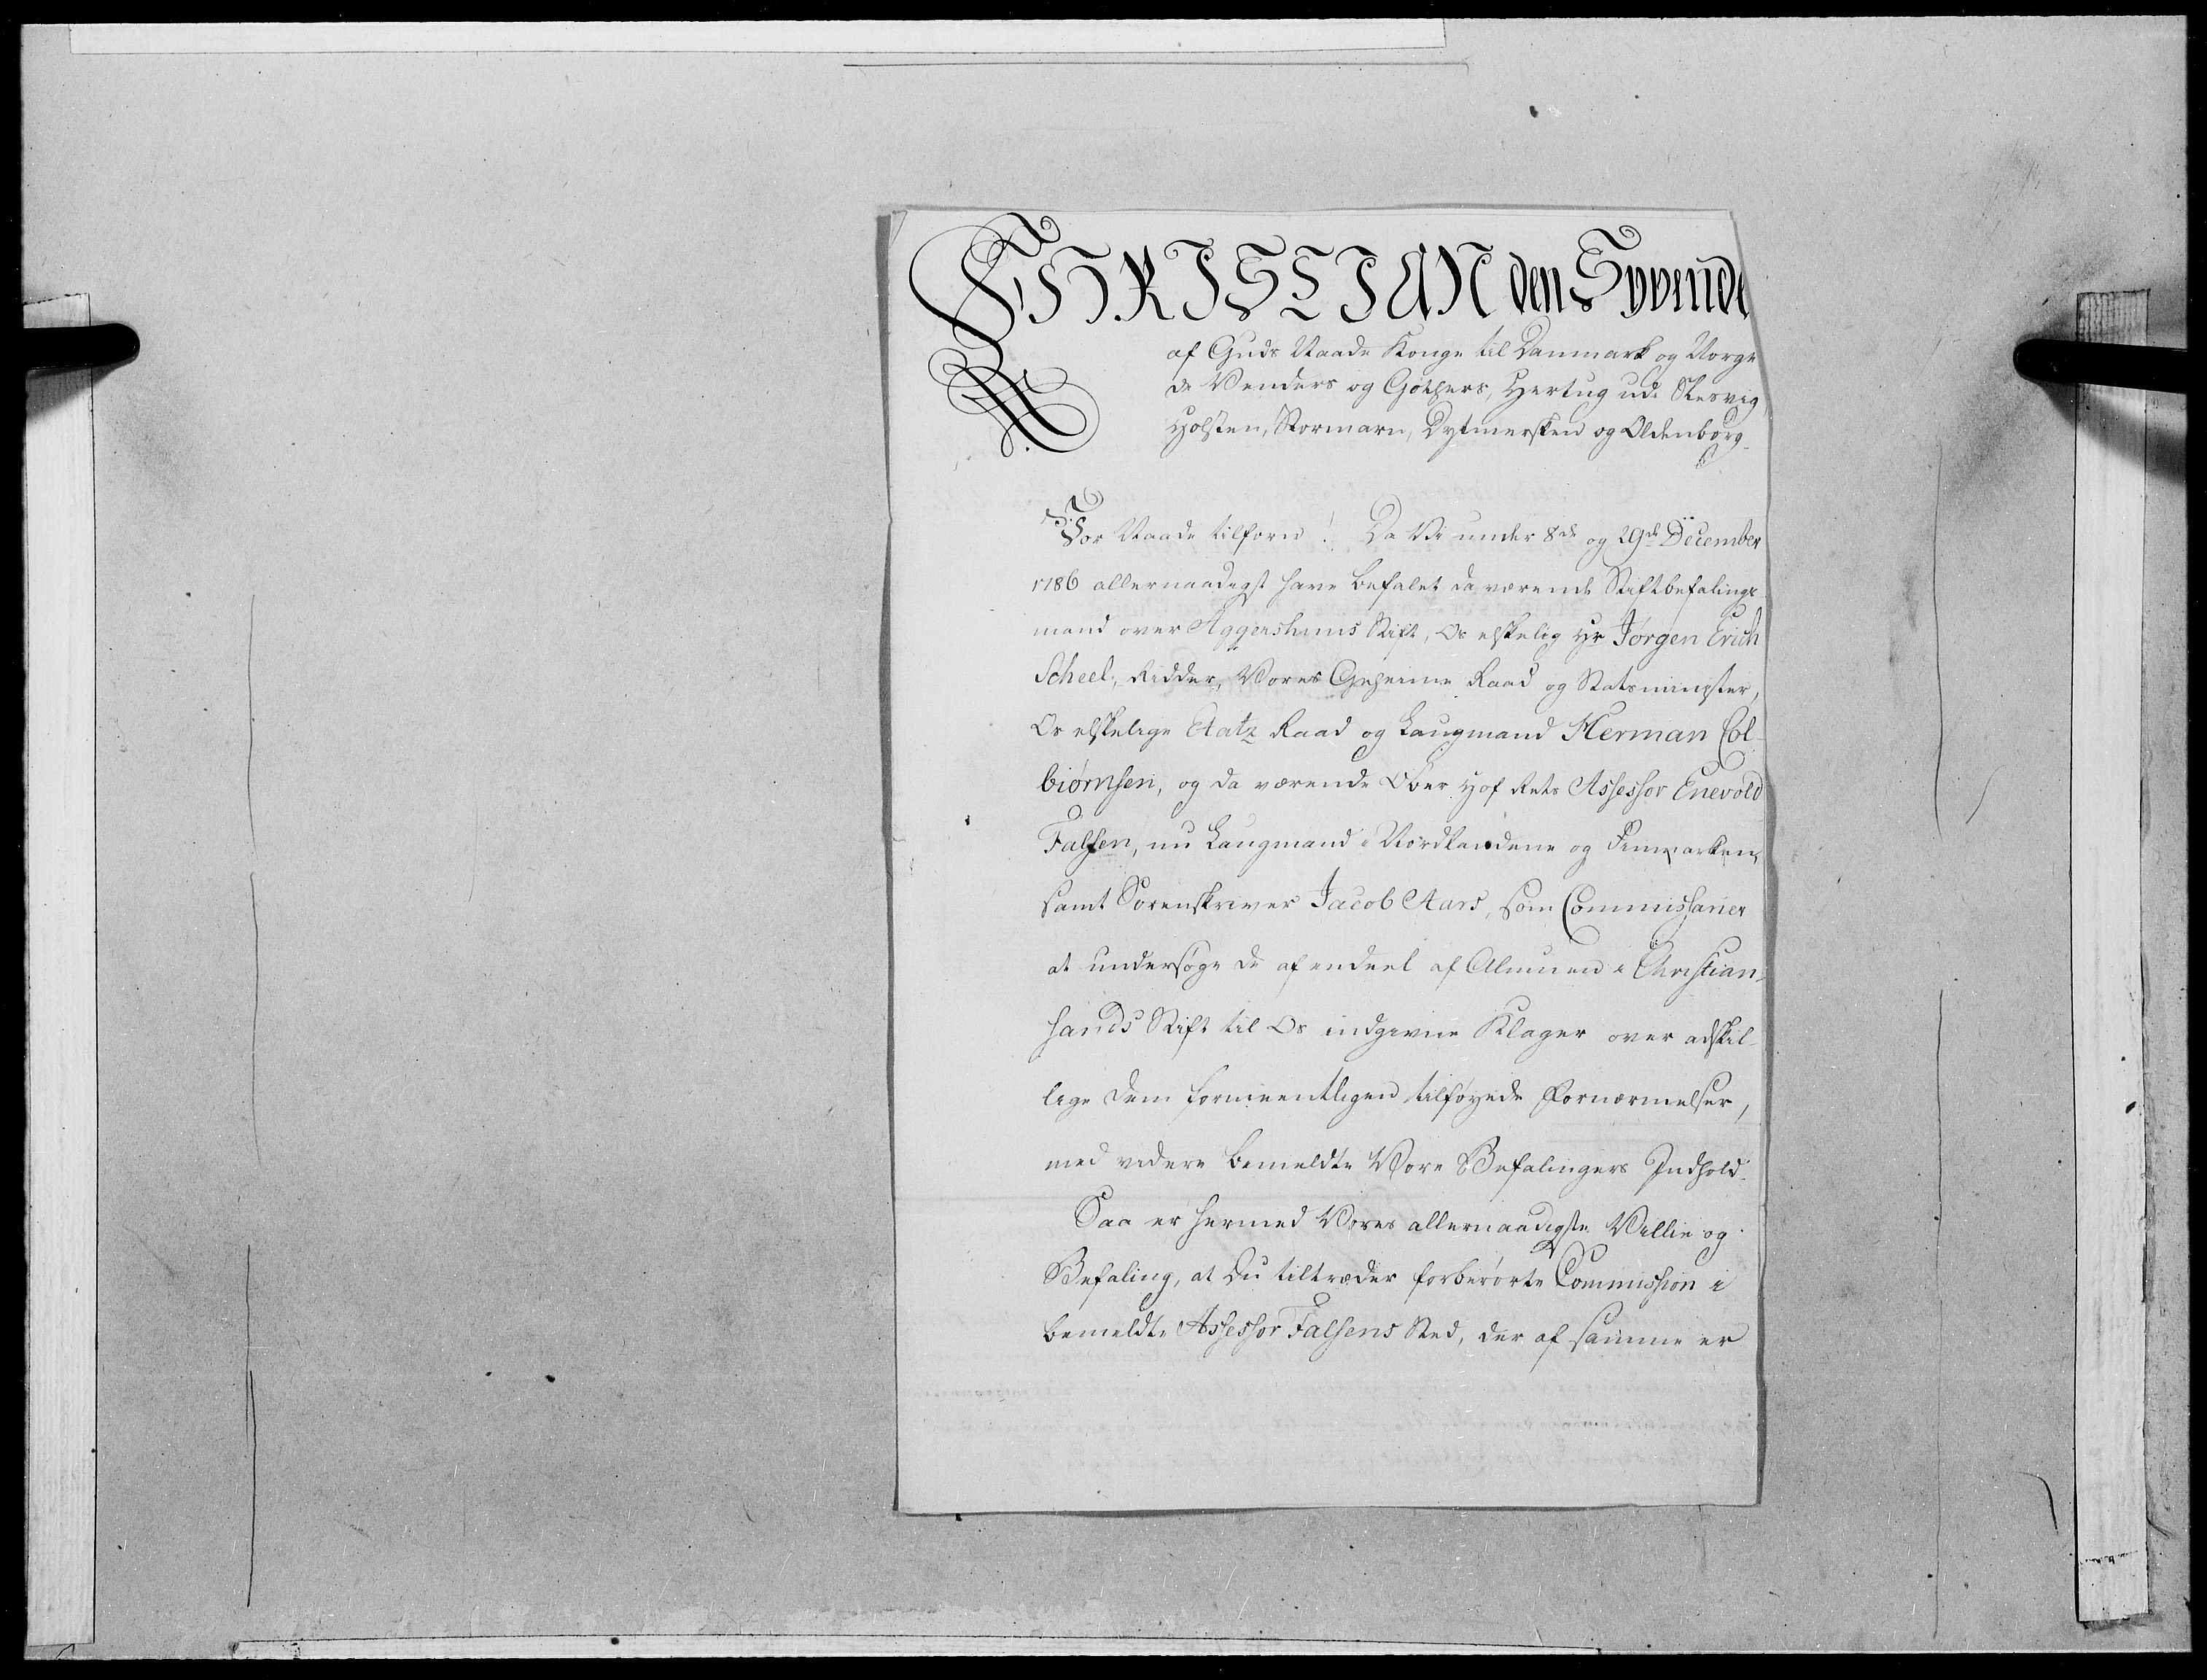 CHRISTIAN den Syvende
af Guds Naade Konge til Danmark og Norge
de Venders og Gothers, Hertug udi Slesvig
Holsten, Stormarn, Dytmersken og Oldenborg.
Vor Naade tilforn! Da Vi under 8de og 29de December
1786 allernaadigst have befalet da værende Stiftbefalings-
mand over Aggershuus Stift, Os elskelig Hr Jørgen Erich
Scheel, Ridder, Vores Geheime Raad og Statsminister,
Os elskelige Etatz Raad og Laugmand Herman Col-
biørnsen, og da værende Ober Hof Rets Assessor Enevold
Falsen, nu Laugmand i Nordlandene og Finmarken,
samt Sorenskriver Jacob Aars, som Commissarier
at undersøge de af endeel af Almuen i Christian-
sands Stift til Os indgivne Klager over adskil-
lige dem formeentligen tilføyede Fornærmelser,
med videre bemeldte Vore Befalingers Indhold.
Saa er hermed Vores allernaadigste Villie og
Befaling, at du tiltræder forberørte Commission i
bemeldte Assessor Falsens Sted, der af samme er